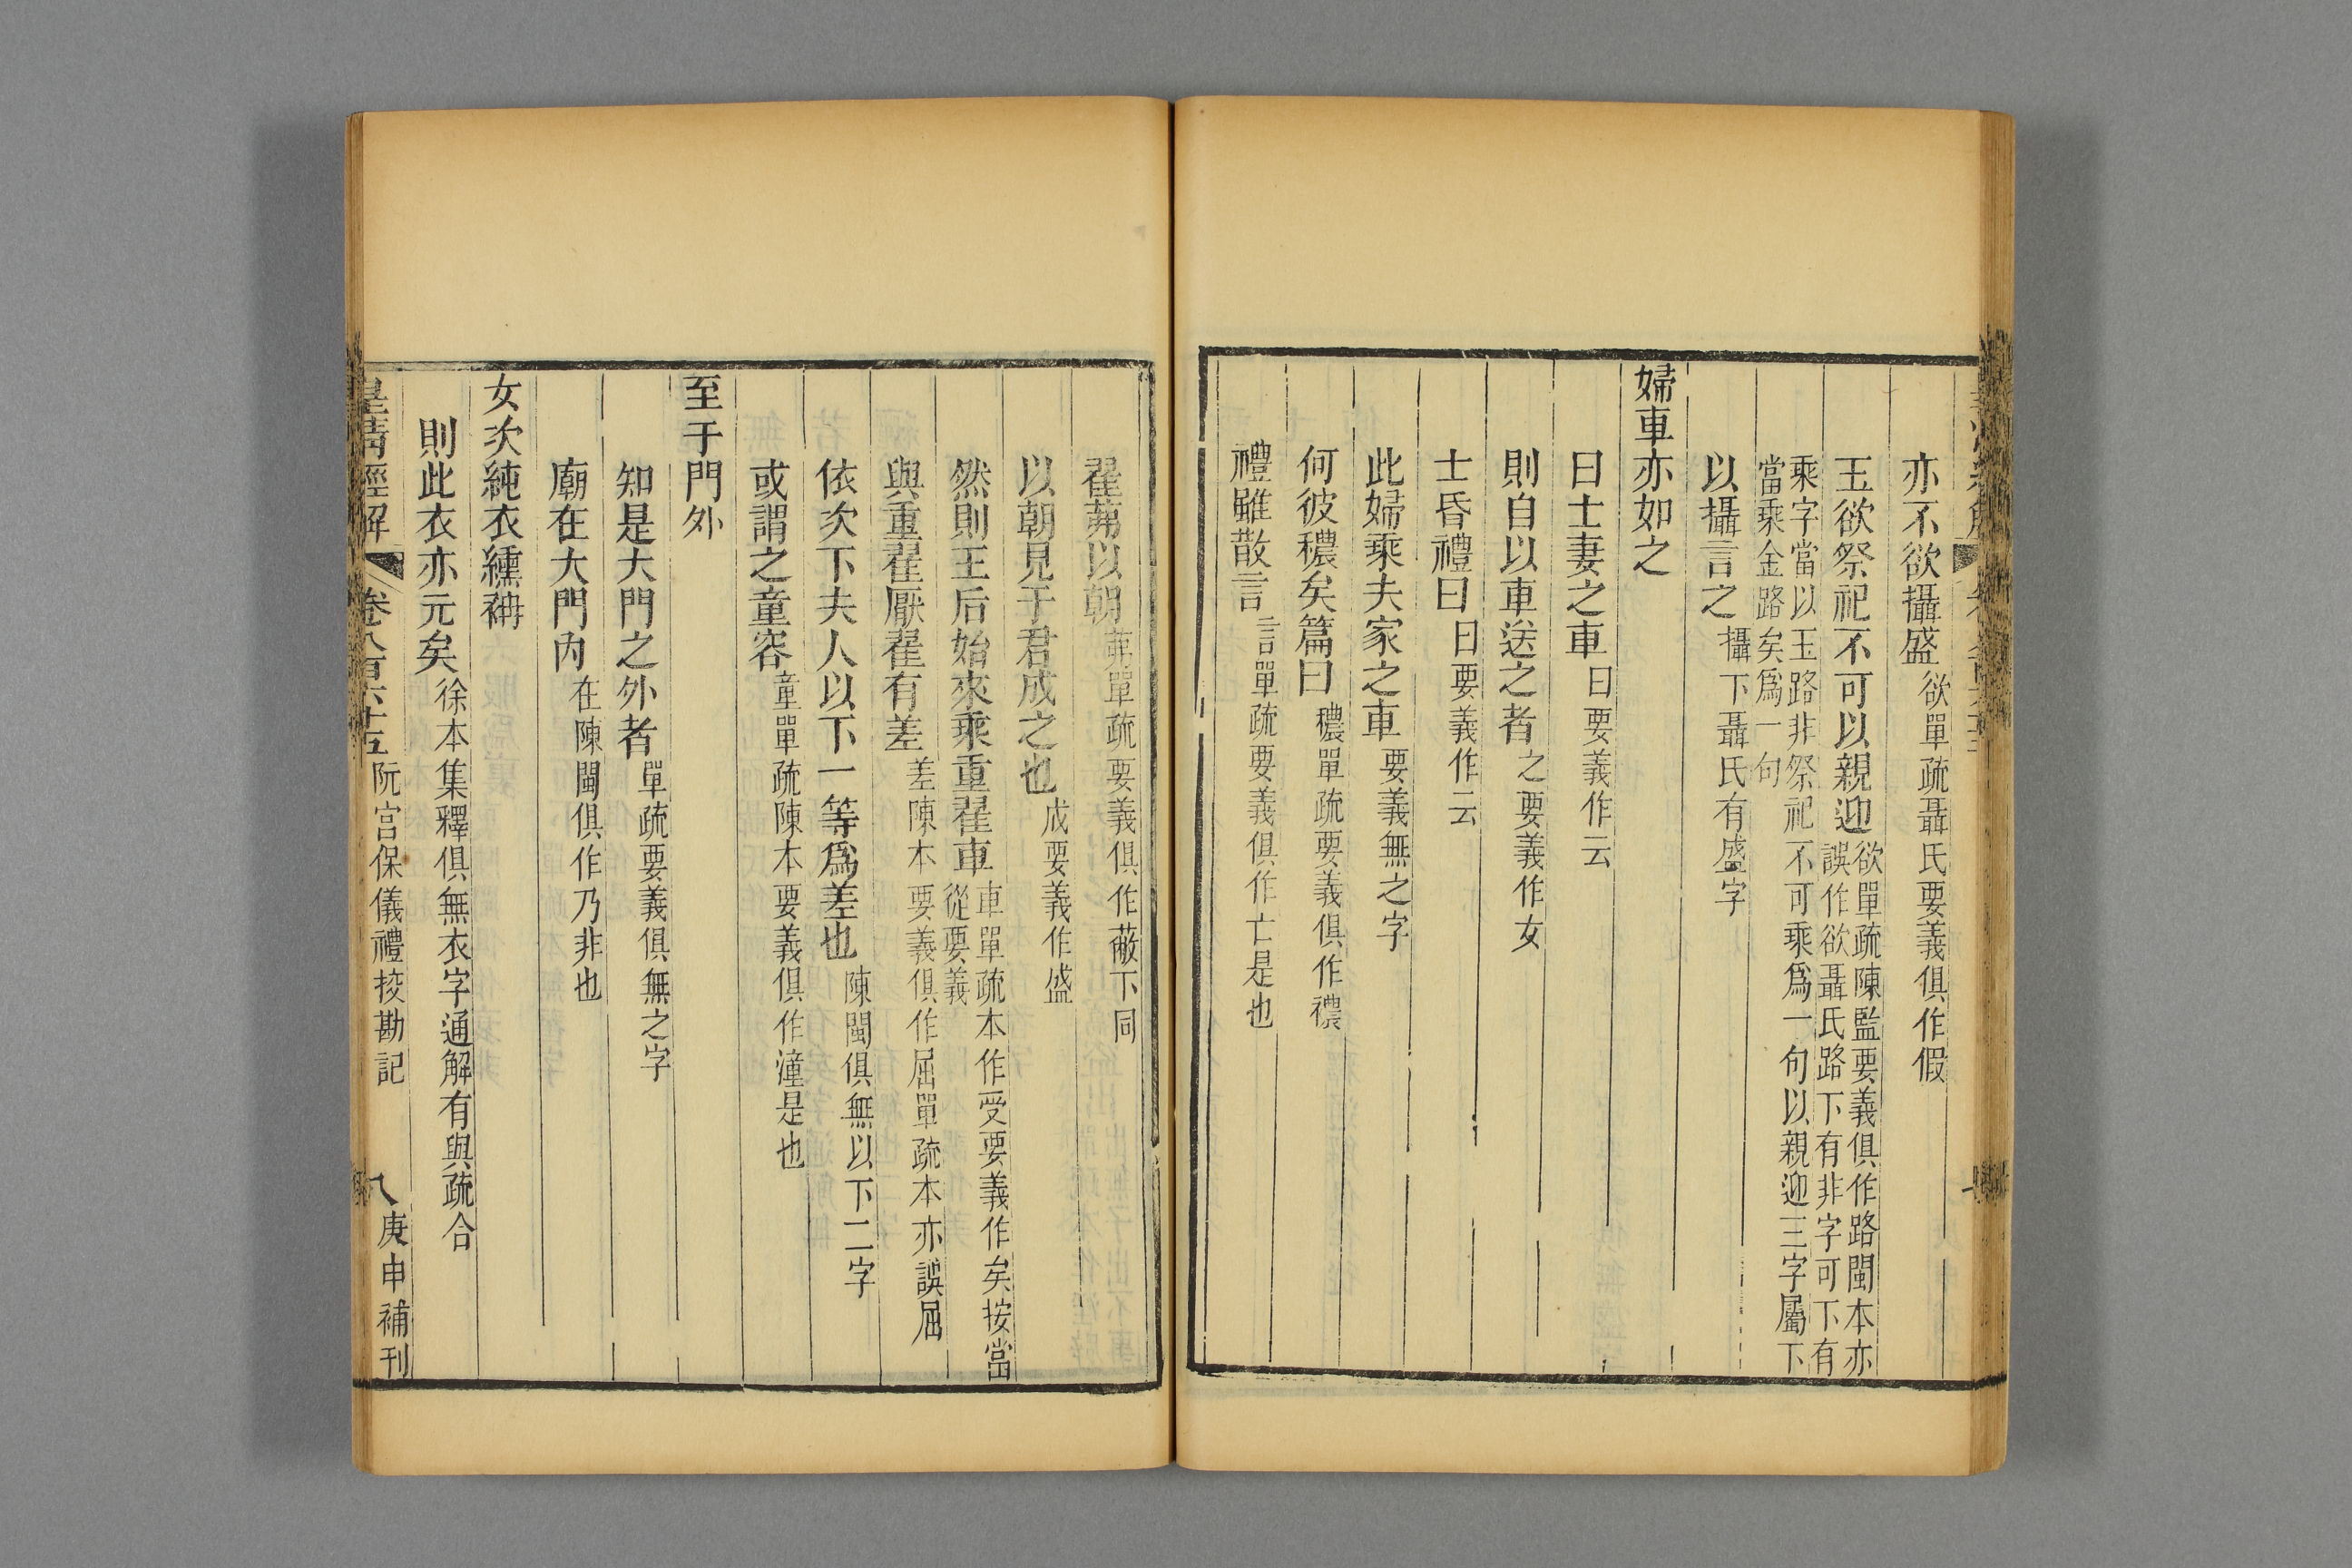 亦不欲攝盛欲單疏聶氏要義俱作假
玉欲祭祀不可以親迎欲單疏陳監要義俱作路閩本亦誤作欲聶氏路下有非字可下有
乘字當以玉路非祭祀不可乘爲一句以親迎三字屬下當乘金路矣爲一句
以攝言之攝下聶氏有盛字
婦車亦如之
曰士妻之車曰要義作云
則自以車送之者之要義作女
士昏禮曰曰要義作云
此婦乘夫家之車要義無之字
何彼穠矣篇曰穠單疏要義俱作襛
禮雖散言言單疏要義俱作亡是也
翟茀以朝茀單疏要義俱作蔽下同
以朝見于君成之也成要義作盛
然則王后始來乘重翟車車單疏本作受要義作矣按當從要義
與重翟厭翟有差差陳本要義俱作屈單疏本亦誤屈
依次下夫人以下一等爲差也陳閩俱無以下二字
或謂之童容童單疏陳本要義俱作潼是也
至于門外
知是大門之外者單疏要義俱無之字
廟在大門內在陳閩俱作乃非也
女次純衣纁袡
則此衣亦元矣徐本集釋俱無衣字通解有與疏合
皇清經解 卷八百六十五 阮宮保儀禮挍勘記 八 庚申補刊